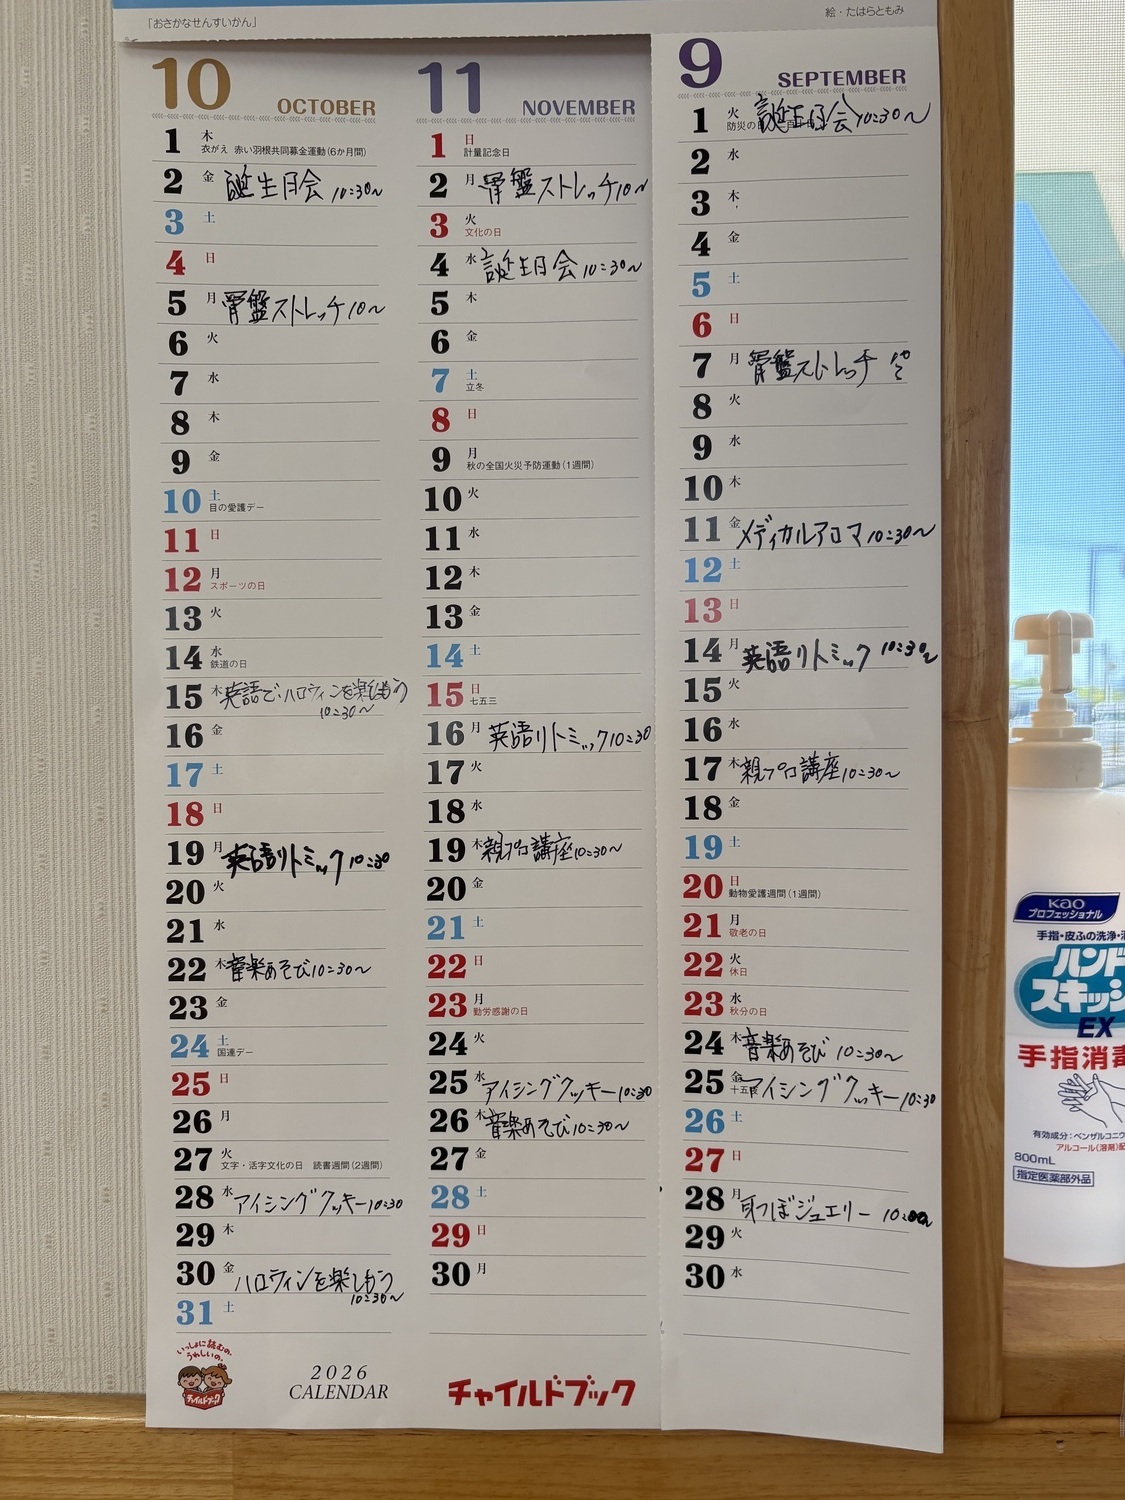 「おさかなせんすいかん」
絵・たはらともみ
10 OCTOBER
1 木 衣がえ 赤い羽根共同募金運動(6か月間)
2 金 誕生日会 10:30〜
3 土
4 日
5 月 骨盤ストレッチ 10〜
6 火
7 水
8 木
9 金
10 土 目の愛護デー
11 日
12 月 スポーツの日
13 火
14 水 鉄道の日
15 木 英語でハロウィンを楽しもう
10:30〜
16 金
17 土
18 日
19 月 英語リトミック 10:30
20 火
21 水
22 木 音楽あそび 10:30〜
23 金
24 土 国連デー
25 日
26 月
27 火 文字・活字文化の日 読書週間(2週間)
28 水 アイシングクッキー 10:30
29 木
30 金 ハロウィンを楽しもう
10:30〜
31 土
いっしょに読むの、
うれしいの。
チャイルドブック
2026
CALENDAR
11 NOVEMBER
1 日 計量記念日
2 月 骨盤ストレッチ 10〜
3 火 文化の日
4 水 誕生日会 10:30〜
5 木
6 金
7 土 立冬
8 日
9 月 秋の全国火災予防運動(1週間)
10 火
11 水
12 木
13 金
14 土
15 日 七五三
16 月 英語リトミック 10:30
17 火
18 水
19 木 親プロ講座 10:30〜
20 金
21 土
22 日
23 月 勤労感謝の日
24 火
25 水 アイシングクッキー 10:30
26 木 音楽あそび 10:30〜
27 金
28 土
29 日
30 月
チャイルドブック
9 SEPTEMBER
1 火 防災の 誕生日会 10:30〜
2 水
3 木
4 金
5 土
6 日
7 月 骨盤ストレッチ
8 火
9 水
10 木
11 金 メディカルアロマ 10:30〜
12 土
13 日
14 月 英語リトミック 10:30〜
15 火
16 水
17 木 親プロ講座 10:30〜
18 金
19 土
20 日 動物愛護週間(1週間)
21 月 敬老の日
22 火 休日
23 水 秋分の日
24 木 音楽あそび 10:30〜
25 金 十五夜 アイシングクッキー 10:30
26 土
27 日
28 月 耳つぼジュエリー 10:00〜
29 火
30 水
Kao
プロフェッショナル
手指・皮ふの洗浄・消
ハンド
スキッシ
EX
手指消毒
有効成分：ベンザルコニウ
アルコール(溶剤)配
800mL
指定医薬部外品